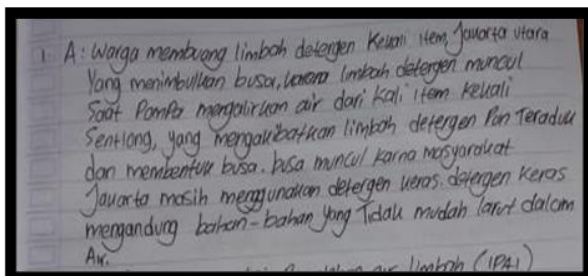 1. A: Warga membuang limbah detergen Kekali item, Jakarta utara
Yang menimbulkan busa, karena limbah detergen muncul
Saat PomPa mengalirkan air dari Kali item Kekali
Sentiong, yang mengakibatkan limbah detergen Pun Teraduk
dan membentuk busa. busa muncul karna masyarakat
Jakarta masih menggunakan detergen keras. detergen Keras
mengandung bahan-bahan yang Tidak mudah larut dalam
Air.
air limbah (IPAl)